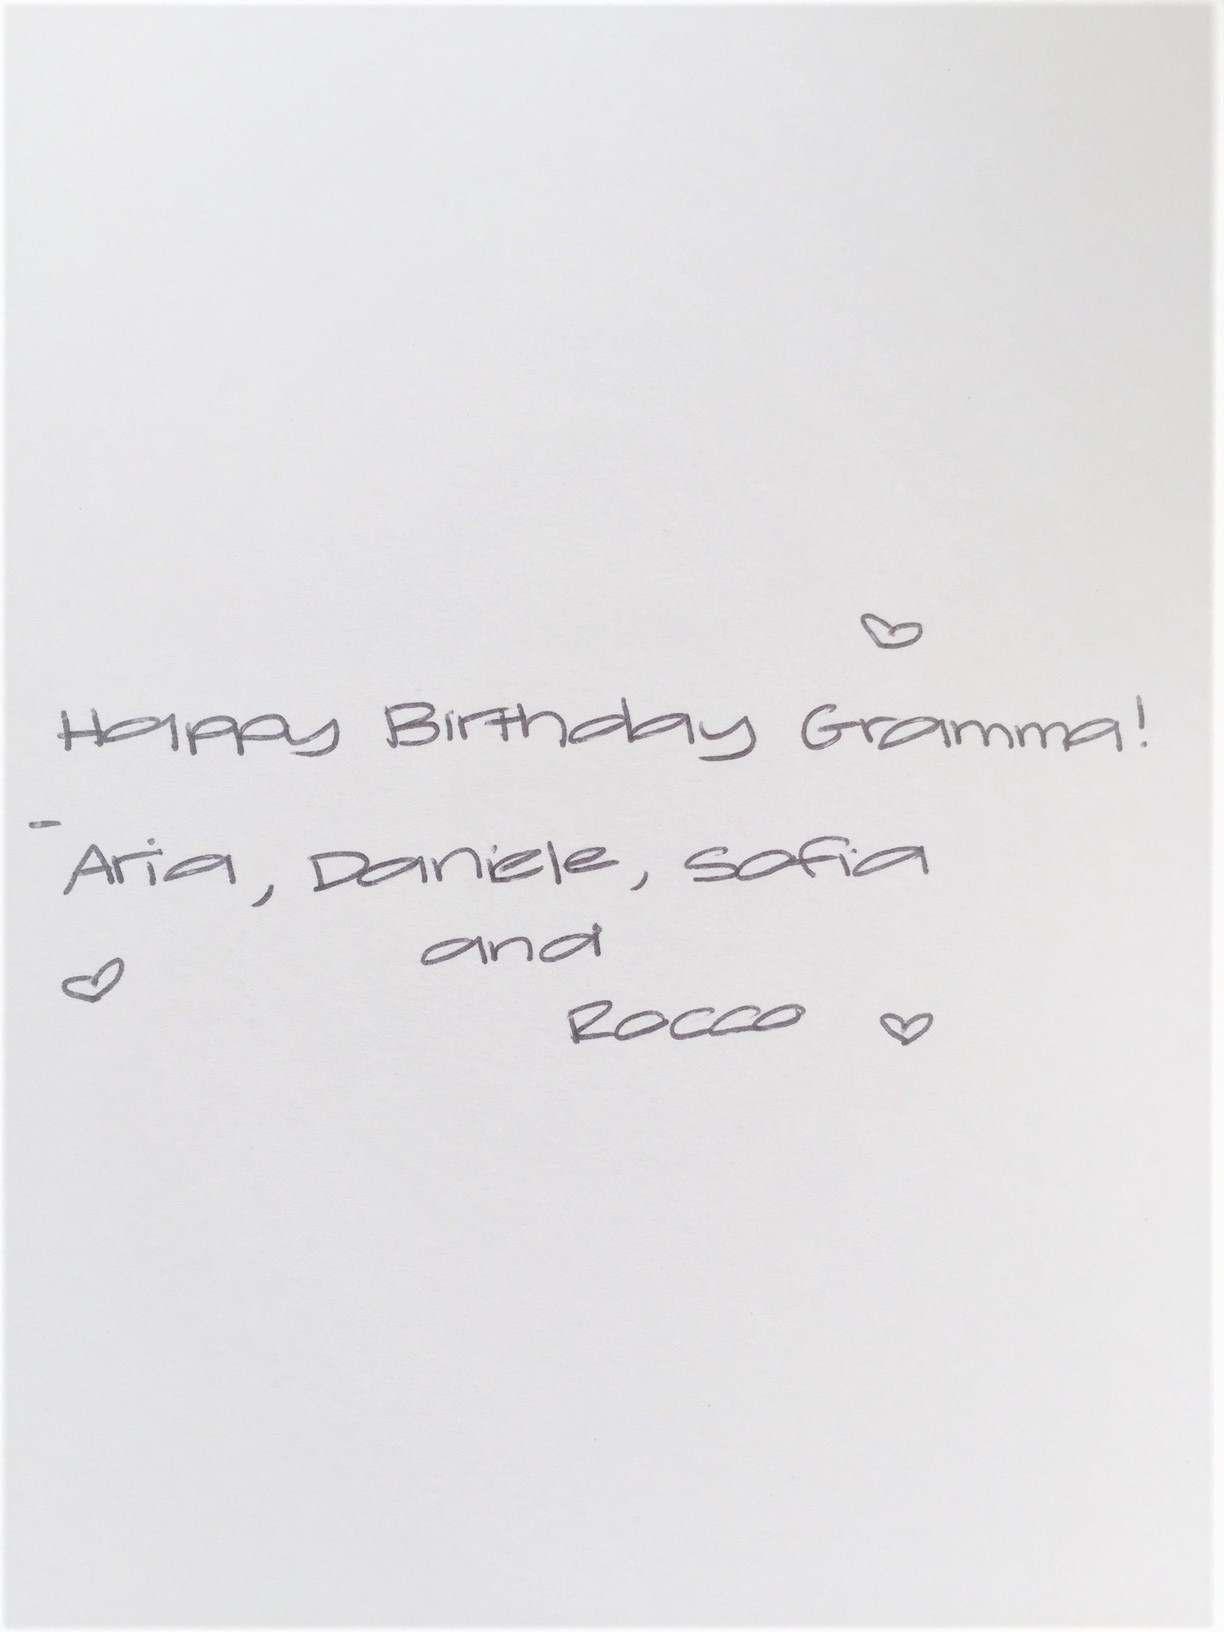 Happy Birthday Gramma!
- Aria, Daniele, Sofia
and
Rocco